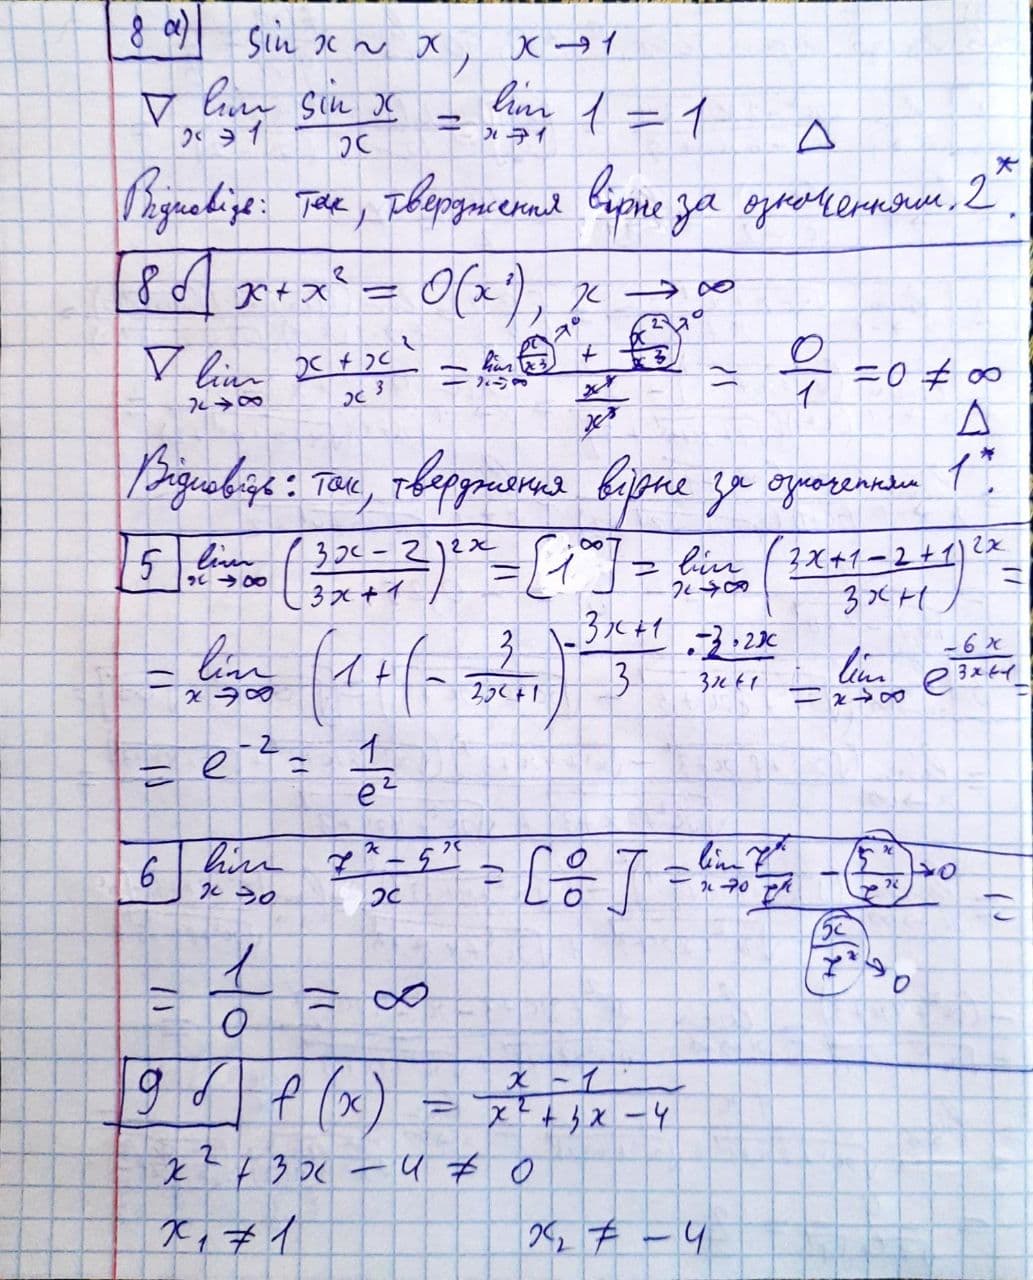 8 а) sin x ~ x, x → 1
∇ lim x→1 sin x / x = lim x→1 1 = 1 Δ
Відповідь: так, твердження вірне за означенням 2*.
8 б x + x² = O(x³), x → ∞
∇ lim x→∞ (x + x²) / x³ = lim x→∞ (x/x³ →0 + x²/x³ →0) / (x³/x³) = 0/1 = 0 ≠ ∞ Δ
Відповідь: так, твердження вірне за означенням 1*.
5 lim x→∞ ((3x − 2)/(3x + 1))^2x = [1^∞] = lim x→∞ ((3x + 1 − 2 + 1)/(3x + 1))^2x =
= lim x→∞ (1 + (− 3/(3x+1))^(− (3x+1)/3 · (−3·2x)/(3x+1)) = lim x→∞ e^(−6x/(3x+1)) =
= e^−2 = 1/e²
6 lim x→0 (7^x − 5^x)/x = [0/0] = lim x→0 (7^x/7^x − 5^x/7^x →0) / (x/7^x →0) =
= 1/0 = ∞
9 б f(x) = (x − 1)/(x² + 3x − 4)
x² + 3x − 4 ≠ 0
x₁ ≠ 1 x₂ ≠ −4